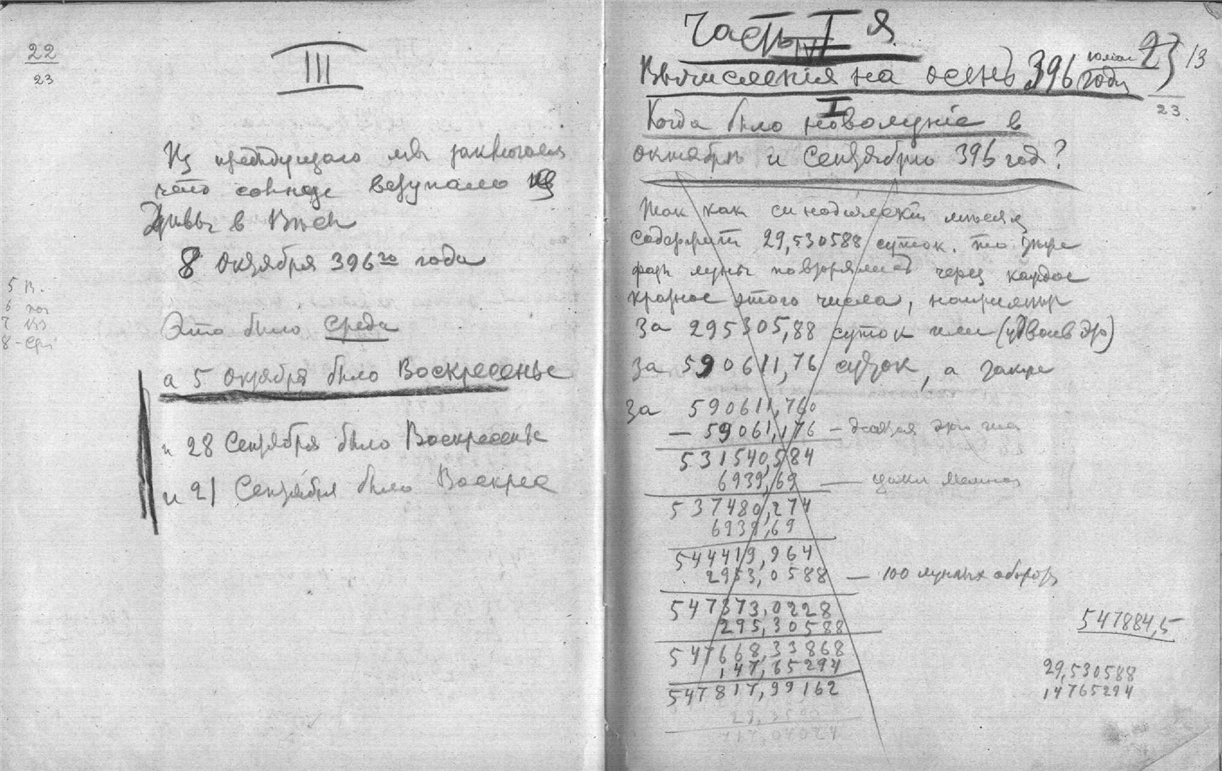 22
23
III
Из предыдущаго мы заключаем
что солнце вступало
в Весы
8 Октября 396го года
5 В.
6 пон
7 вт
8 - Сре
Это было Среда
а 5 октября было Воскресенье
и 28 Сентября было Воскресенье
и 21 Сентября было Воскрес
Часть I я
23
23
13
Вычисления на осень 396 года
I
Когда было новолуніе в
октябрѣ и Сентябрѣ 396 год?
Так как синодический мѣсяц
содержит 29,530588 суток, то
фазы луны повторялись через каждое
кратное этого числа, например
За 295305,88 суток или (удвоив это)
За 590611,76 суток, а также
За 590611,760
— 59061,176 —
531540,584
6939,69 —
537480,274
6939,69
544419,964
2953,0588 — 100 лунных оборот
547373,0228
295,30588
547668,33868
147,65294
547817,99162
547884,5
29,530588
14765294